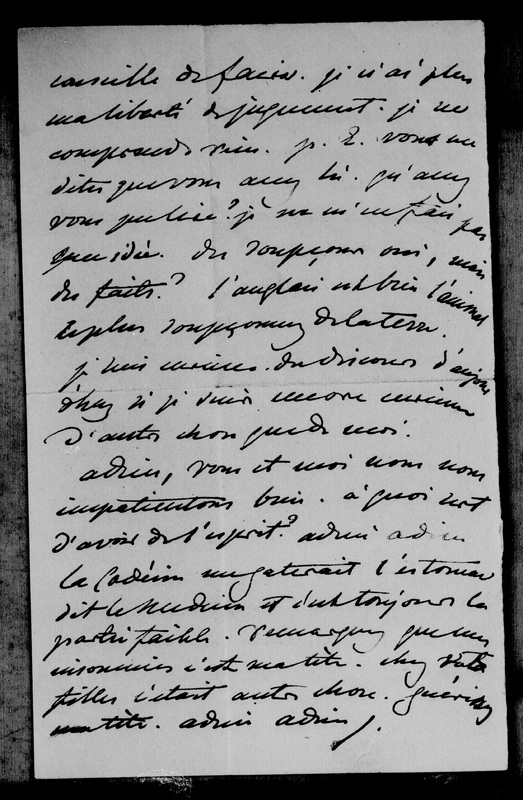 conseille de faire. je n'ai plus
ma liberté de jugement. je ne
comprends rien. p. E. vous me
dites que vous avez lu. qu'avez
vous publié? je ne m'en fais pas
une idée. des soupçons oui, mais
des faits? l'anglais est bien l'animal
le plus soupçonneux de la terre.
je suis curieux du discours d'aujour
d'huy si je suis encore curieux
d'autre chose que de moi.
adieu, vous et moi nous nous
impatientons bien. à quoi sert
d'avoir de l'esprit? adieu adieu
la Codéine me gaterait l'estomac
dit le medecin et c'est toujours la
partie faible. remarquez que mes
insomnies c'est ma tête. chez
filles c'était autre chose. guérissez
ma tête. adieu adieu.